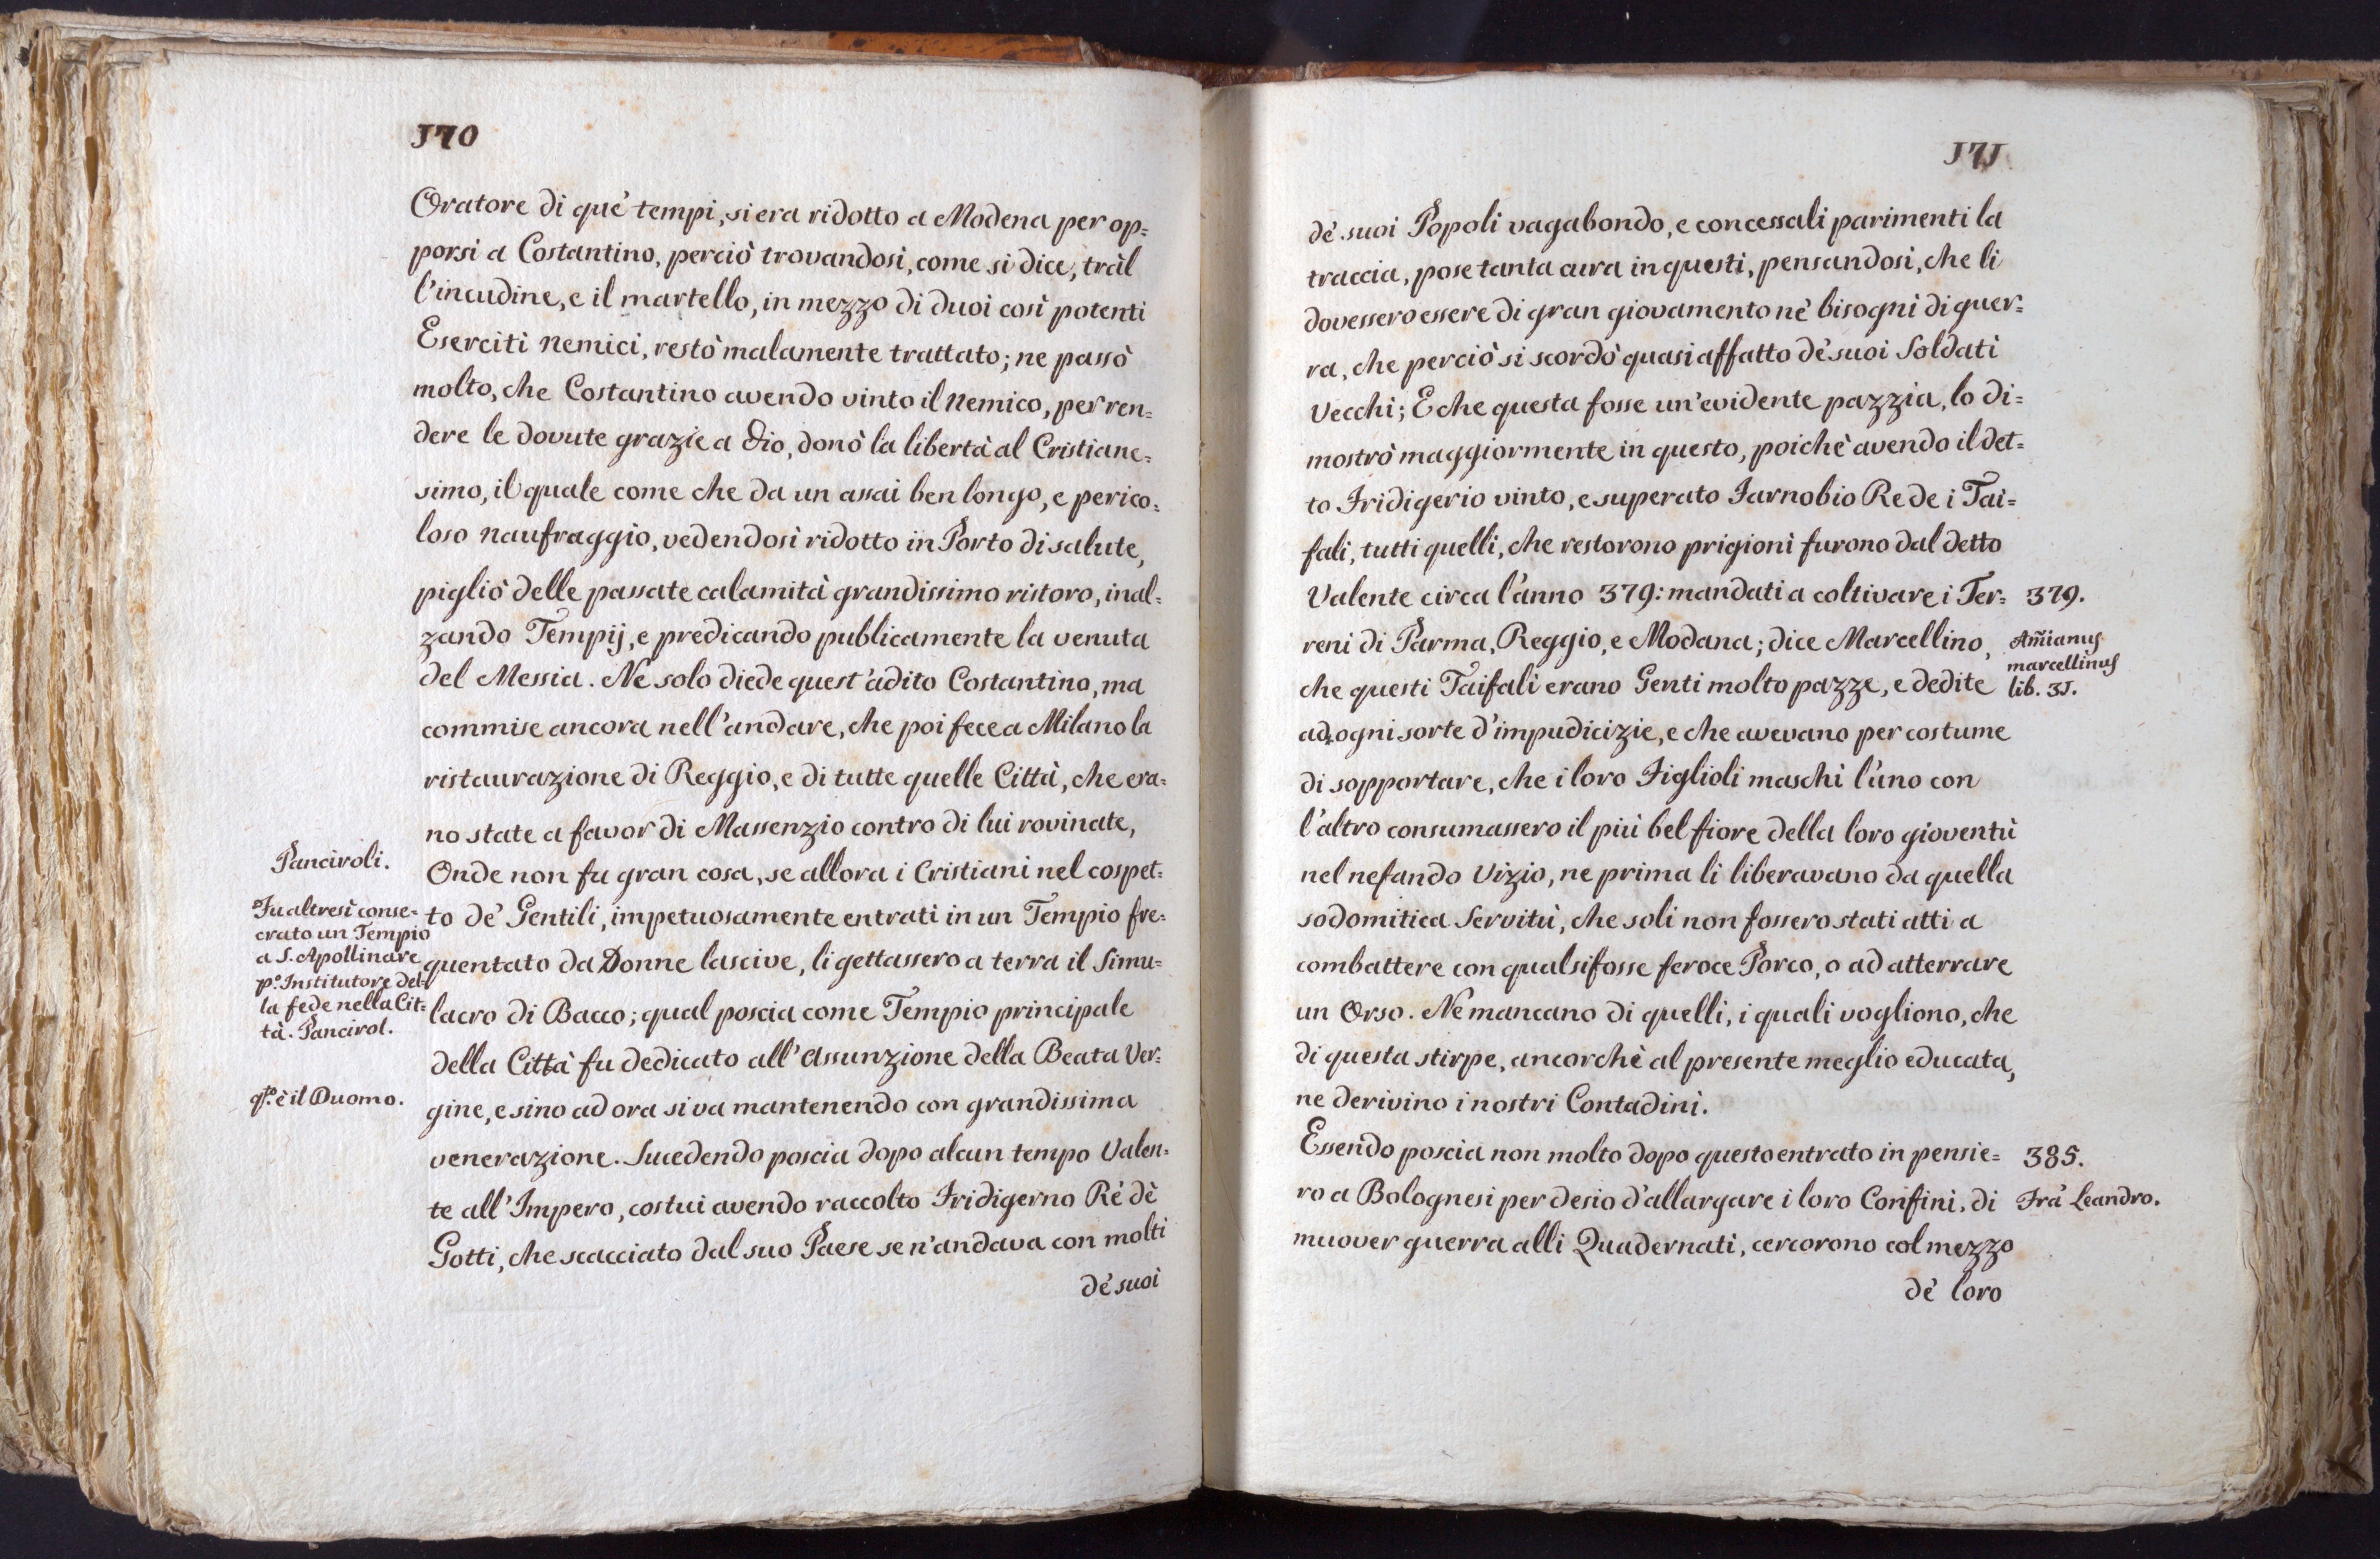 170
Oratore di què tempi, si era ridotto a Modena per op=
porsi a Costantino, perciò trovandosi, come si dice, tràl
l'incudine, e il martello, in mezzo di duoi così potenti
Eserciti nemici, restò malamente trattato; ne passò
molto, che Costantino avendo vinto il nemico, per ren=
dere le dovute grazie a Dio, donò la libertà al Cristiane=
simo, il quale come che da un assai ben longo, e perico=
loso naufraggio, vedendosi ridotto in Porto di salute,
pigliò delle passate calamità grandissimo ristoro, inal=
zando Tempij, e predicando publicamente la venuta
del Messia. Ne solo diede quest'adito Costantino, ma
commise ancora nell'andare, che poi fece a Milano la
ristaurazione di Reggio, e di tutte quelle Città, che era=
no state a favor di Massenzio contro di lui rovinate,
Onde non fu gran cosa, se allora i Cristiani nel cospet=
to de' Gentili, impetuosamente entrati in un Tempio fre=
quentato da Donne lascive, li gettassero a terra il Simu=
lacro di Bacco; qual poscia come Tempio principale
della Città fu dedicato all'Assunzione della Beata Ver=
gine, e sino ad ora si va mantenendo con grandissima
venerazione. Sucedendo poscia dopo alcun tempo Valen=
te all'Impero, costui avendo raccolto Fridigerno Rè dè
Gotti, che scacciato dal suo Paese se n'andava con molti
dè suoi
Panciroli.
Fu altresì conse=
crato un Tempio
a S. Apollinare
p.º Institutore del=
la fede nella Cit=
tà. Pancirol.
q.to è il Duomo.
171
dè suoi Popoli vagabondo, e concessali parimenti la
traccia, pose tanta cura in questi, pensandosi, che li
dovessero essere di gran giovamento nè bisogni di guer=
ra, che perciò si scordò quasi affatto dè suoi Soldati
Vecchi; E che questa fosse un'evidente pazzia, lo di=
mostrò maggiormente in questo, poichè avendo il det=
to Fridigerio vinto, e superato Farnobio Re de i Tai=
fali, tutti quelli, che restorono prigioni furono dal detto
Valente circa l'anno 379: mandati a coltivare i Ter=
reni di Parma, Reggio, e Modana; dice Marcellino,
che questi Taifali erano Genti molto pazze, e dedite
ad ogni sorte d'impudicizie, e che avevano per costume
di sopportare, che i loro Figlioli maschi l'uno con
l'altro consumassero il più bel fiore della loro gioventù
nel nefando Vizio, ne prima li liberavano da quella
sodomitica Servitù, che soli non fossero stati atti a
combattere con qualsifosse feroce Porco, o ad atterrare
un Orso. Ne mancano di quelli, i quali vogliono, che
di questa stirpe, ancorchè al presente meglio educata,
ne derivino i nostri Contadini.
Essendo poscia non molto dopo questo entrato in pensie=
ro a Bolognesi per desio d'allargare i loro Confini, di
muover guerra alli Quadernati, cercorono col mezzo
dè loro
379.
Am̃ianus
marcellinus
lib. 31.
385.
Frà Leandro.